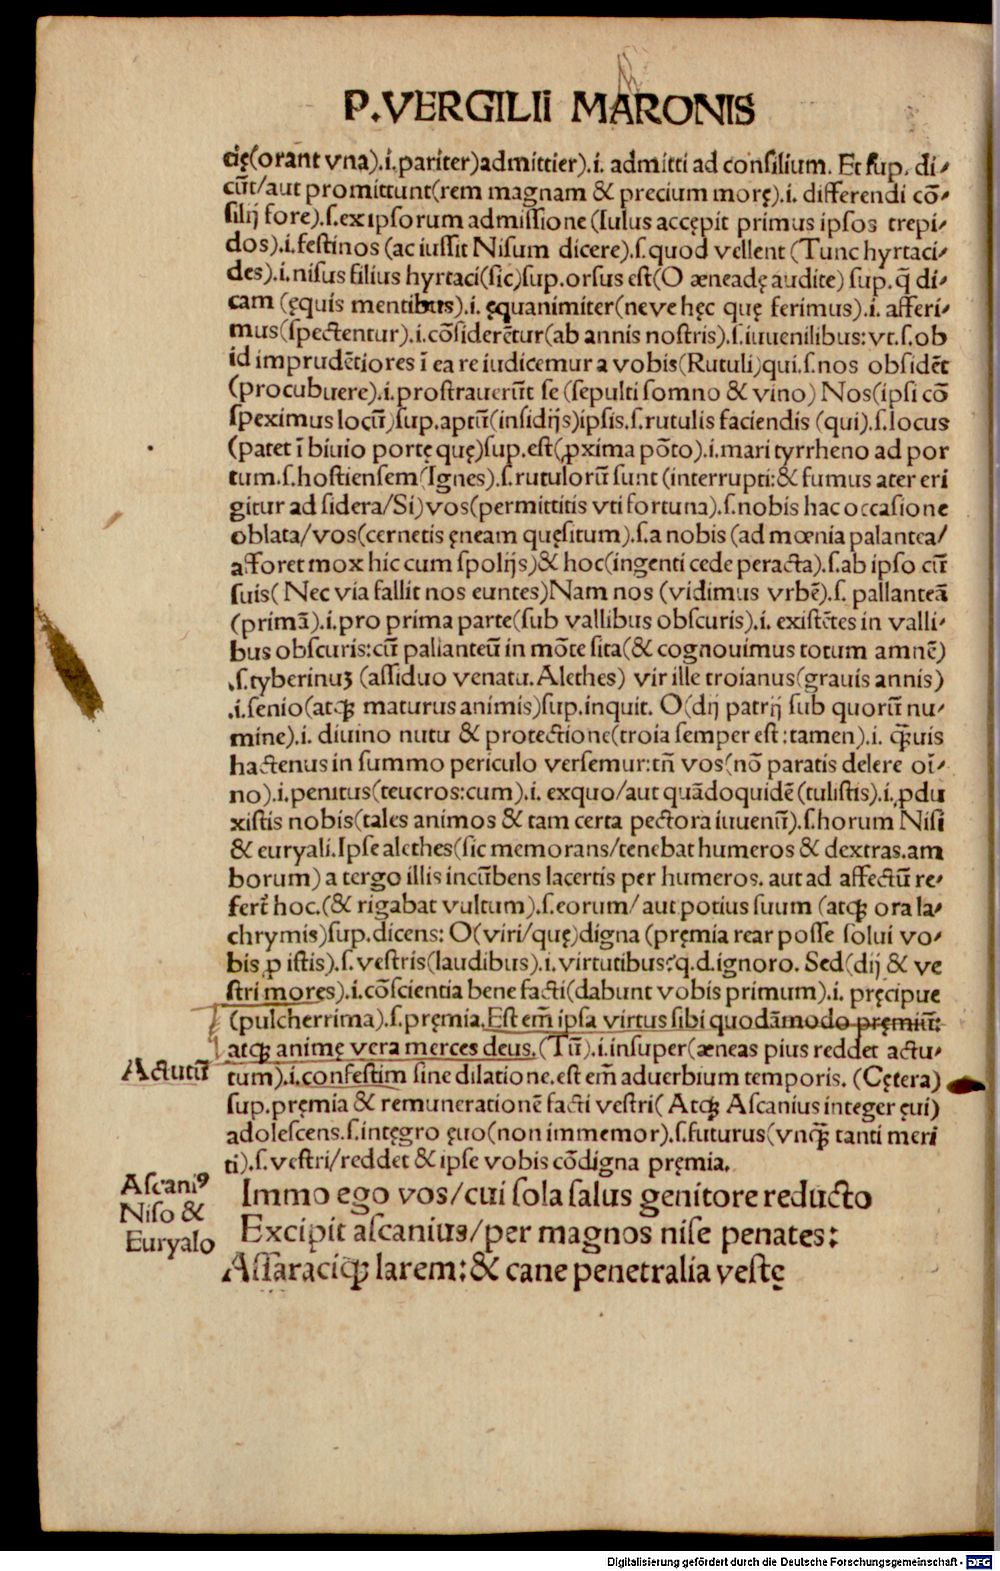 P.VERGILII MARONIS
cię(orant vna).i.pariter)admittier).i. admitti ad consilium. Et sup. di⸗
cūt/aut promittunt(rem magnam & precium morę).i. differendi cō⸗
silij fore).ſ.ex ipſorum admiſſione (Iulus accępit primus ipſos trepi⸗
dos).i.feſtinos (ac iuſſit Niſum dicere).ſ.quod vellent (Tunc hyrtaci⸗
des).i.niſus filius hyrtaci(ſic)ſup.orſus eſt(O æneadę audite) ſup.q̄ di⸗
cam (ęquis mentibus).i. ęquanimiter(neve hęc quę ferimus).i. afferi⸗
mus(ſpectentur).i.cōſiderētur(ab annis noſtris).ſ.iuuenilibus:vt.ſ.ob
id imprudētiores ī ea re iudicemur a vobis(Rutuli)qui.ſ.nos obſidēt
(procubuere).i.proſtrauerūt ſe (ſepulti ſomno & vino) Nos(ipſi cō
ſpeximus locū)ſup.aptū(inſidijs)ipſis.ſ.rutulis faciendis (qui).ſ.locus
(patet ī biuio portę quę)ſup.eſt(ꝓxima pōto).i.mari tyrrheno ad por
tum.ſ.hoſtienſem(Ignes).ſ.rutulorū ſunt (interrupti:& fumus ater eri
gitur ad ſidera/Si)vos(permittitis vti fortuna).ſ.nobis hac occaſione
oblata/vos(cernetis ęneam quęſitum).ſ.a nobis (ad mœnia palantea/
afforet mox hic cum ſpolijs)& hoc(ingenti cede peracta).ſ.ab ipſo cū
ſuis( Nec via fallit nos euntes)Nam nos (vidimus vrbē).ſ. pallanteā
(primā).i.pro prima parte(ſub vallibus obſcuris).i. exiſtētes in valli⸗
bus obſcuris:cū palianteū in mōte ſita(& cognouimus totum amnē)
.ſ.tyberinuꝫ (aſſiduo venatu.Alethes) vir ille troianus(grauis annis)
.i.ſenio(atqꝫ maturus animis)ſup.inquit. O(dij patrij ſub quorū nu⸗
mine).i. diuino nutu & protectione(troia ſemper eſt:tamen).i. q̄uis
hactenus in ſummo periculo verſemur:tn̄ vos(nō paratis delere oī⸗
no).i.penitus(teucros:cum).i. exquo/aut quādoquidē(tuliſtis).i.ꝓdu
xiſtis nobis(tales animos & tam certa pectora iuuenū).ſ.horum Niſi
& euryali.Ipſe alethes(ſic memorans/tenebat humeros & dextras.am
borum)a tergo illis incūbens lacertis per humeros. aut ad affectū re⸗
fert̄ hoc.(& rigabat vultum).ſ.eorum/aut potius ſuum (atqꝫ ora la⸗
chrymis)ſup.dicens: O(viri/quę)digna (pręmia rear poſſe ſolui vo⸗
bis ꝓ iſtis).ſ. veſtris(laudibus).i. virtutibus?q.d.ignoro. Sed(dij & ve
ſtri mores).i.cōſcientia bene facti(dabunt vobis primum).i. pręcipue
(pulcherrima).ſ.pręmia.Eſt em̄ ipſa virtus ſibi quodāmodo pręmiū:
atqꝫ animę vera merces deus.(Tū).i.inſuper(æneas pius reddet actu⸗
Actutū
tum).i.confeſtim ſine dilatione.eſt em̄ aduerbium temporis. (Cętera)
ſup.pręmia & remunerationē facti veſtri( Atqꝫ Aſcanius integer ęui)
adoleſcens.ſ.intęgro ęuo(non immemor).ſ.futurus(vnq̄ tanti meri
ti).ſ.veſtri/reddet & ipſe vobis cōdigna pręmia.
Aſcaniꝰ
Niſo &
Euryalo
Immo ego vos/cui ſola ſalus genitore reducto
Excipit aſcanius/per magnos niſe penates:
Aſſaraciqꝫ larem:& cane penetralia veſtę
Digitalisierung gefördert durch die Deutsche Forschungsgemeinschaft - DFG